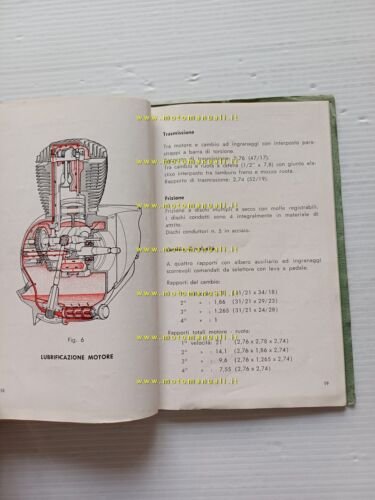 www.motomanuali.it
www.motomanuali.it
www.motomanuali.it
www.motomanuali.it
www.motomanuali.it
www.motomanuali.it
www.motomanuali.it
Fig. 6
LUBRIFICAZIONE MOTORE
18
Trasmissione
Tra motore e cambio ad ingranaggi con interposto para-
strappi a barra di torsione.
2,76 (47/17).
Tra cambio e ruota a catena (1/2" x 7,8) con giunto ela-
stico interposto fra tamburo freno e mozzo ruota.
Rapporto di trasmissione: 2,74 (52/19).
Frizione
Frizione a dischi multipli a secco con molle registrabili.
I dischi condotti sono 4 integralmente in materiale di
attrito.
Dischi conduttori n. 5 in acciaio.
A quattro rapporti con albero ausiliario ad ingranaggi
scorrevoli comandati da selettore con leva a pedale.
Rapporti del cambio:
(31/21 x 34/18)
2ª » : 1,86 (31/21 x 29/23)
3ª » : 1,265 (31/21 x 24/28)
4ª » : 1
Rapporti totali motore - ruota:
1ª velocità: 21 (2,76 x 2,78 x 2,74)
2ª » : 14,1 (2,76 x 1,86 x 2,74)
3ª » : 9,6 (2,76 x 1,265 x 2,74)
4ª » : 7,55 (2,76 x 2,74)
19